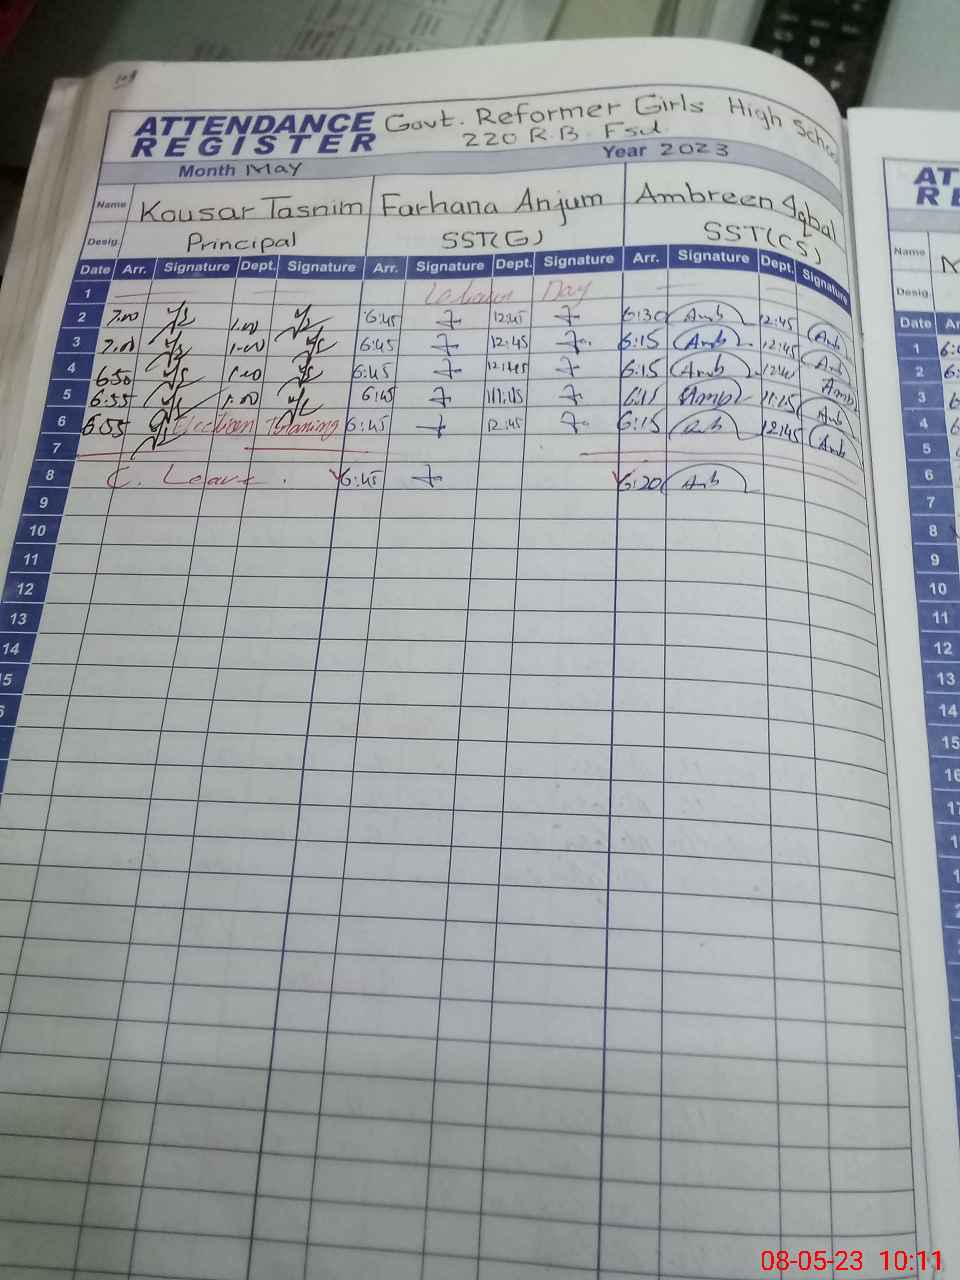 ATTENDANCE REGISTER Govt. Reformer Girls High School
220 R.B. Fsd.
Month May Year 2023
Name Kousar Tasnim Farhana Anjum Ambreen Iqbal
Desig. Principal SST(G) SST(CS)
Date Arr. Signature Dept. Signature Arr. Signature Dept. Signature Arr. Signature Dept. Signature
1 Day
2 7.00 1.00 6:45 12:45 6:30 Amb 12:45 Amb
3 7.00 1.00 6:45 12:45 6:15 Amb 12:45 Amb
4 6:50 1.00 6:45 12:45 6:15 Amb Amb
5 6:55 1.00 6:45 11:15 6:15 Amb 11:15 Amb
6 6:55 6:45 12:45 6:15 Amb 12:45 Amb
7
8 C. Leave. 6:45 6:20 Amb
9
10
11
12
13
14
5
AT
RE
Name
Desig.
Date Ar
1
2
3
4
5
6
7
8
9
10
11
12
13
14
15
16
17
08-05-23 10:11